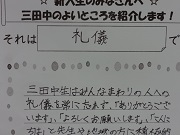 ☆ 新入生のみなさんへ ☆
三田中のよいところを紹介します!
それは 礼儀 で
三田中生はみんなまわりの人への
礼儀を第一にできます。「ありがとうござ
います。」「よろしくお願いします。」「こんに
ちは」と先生や地域の方に